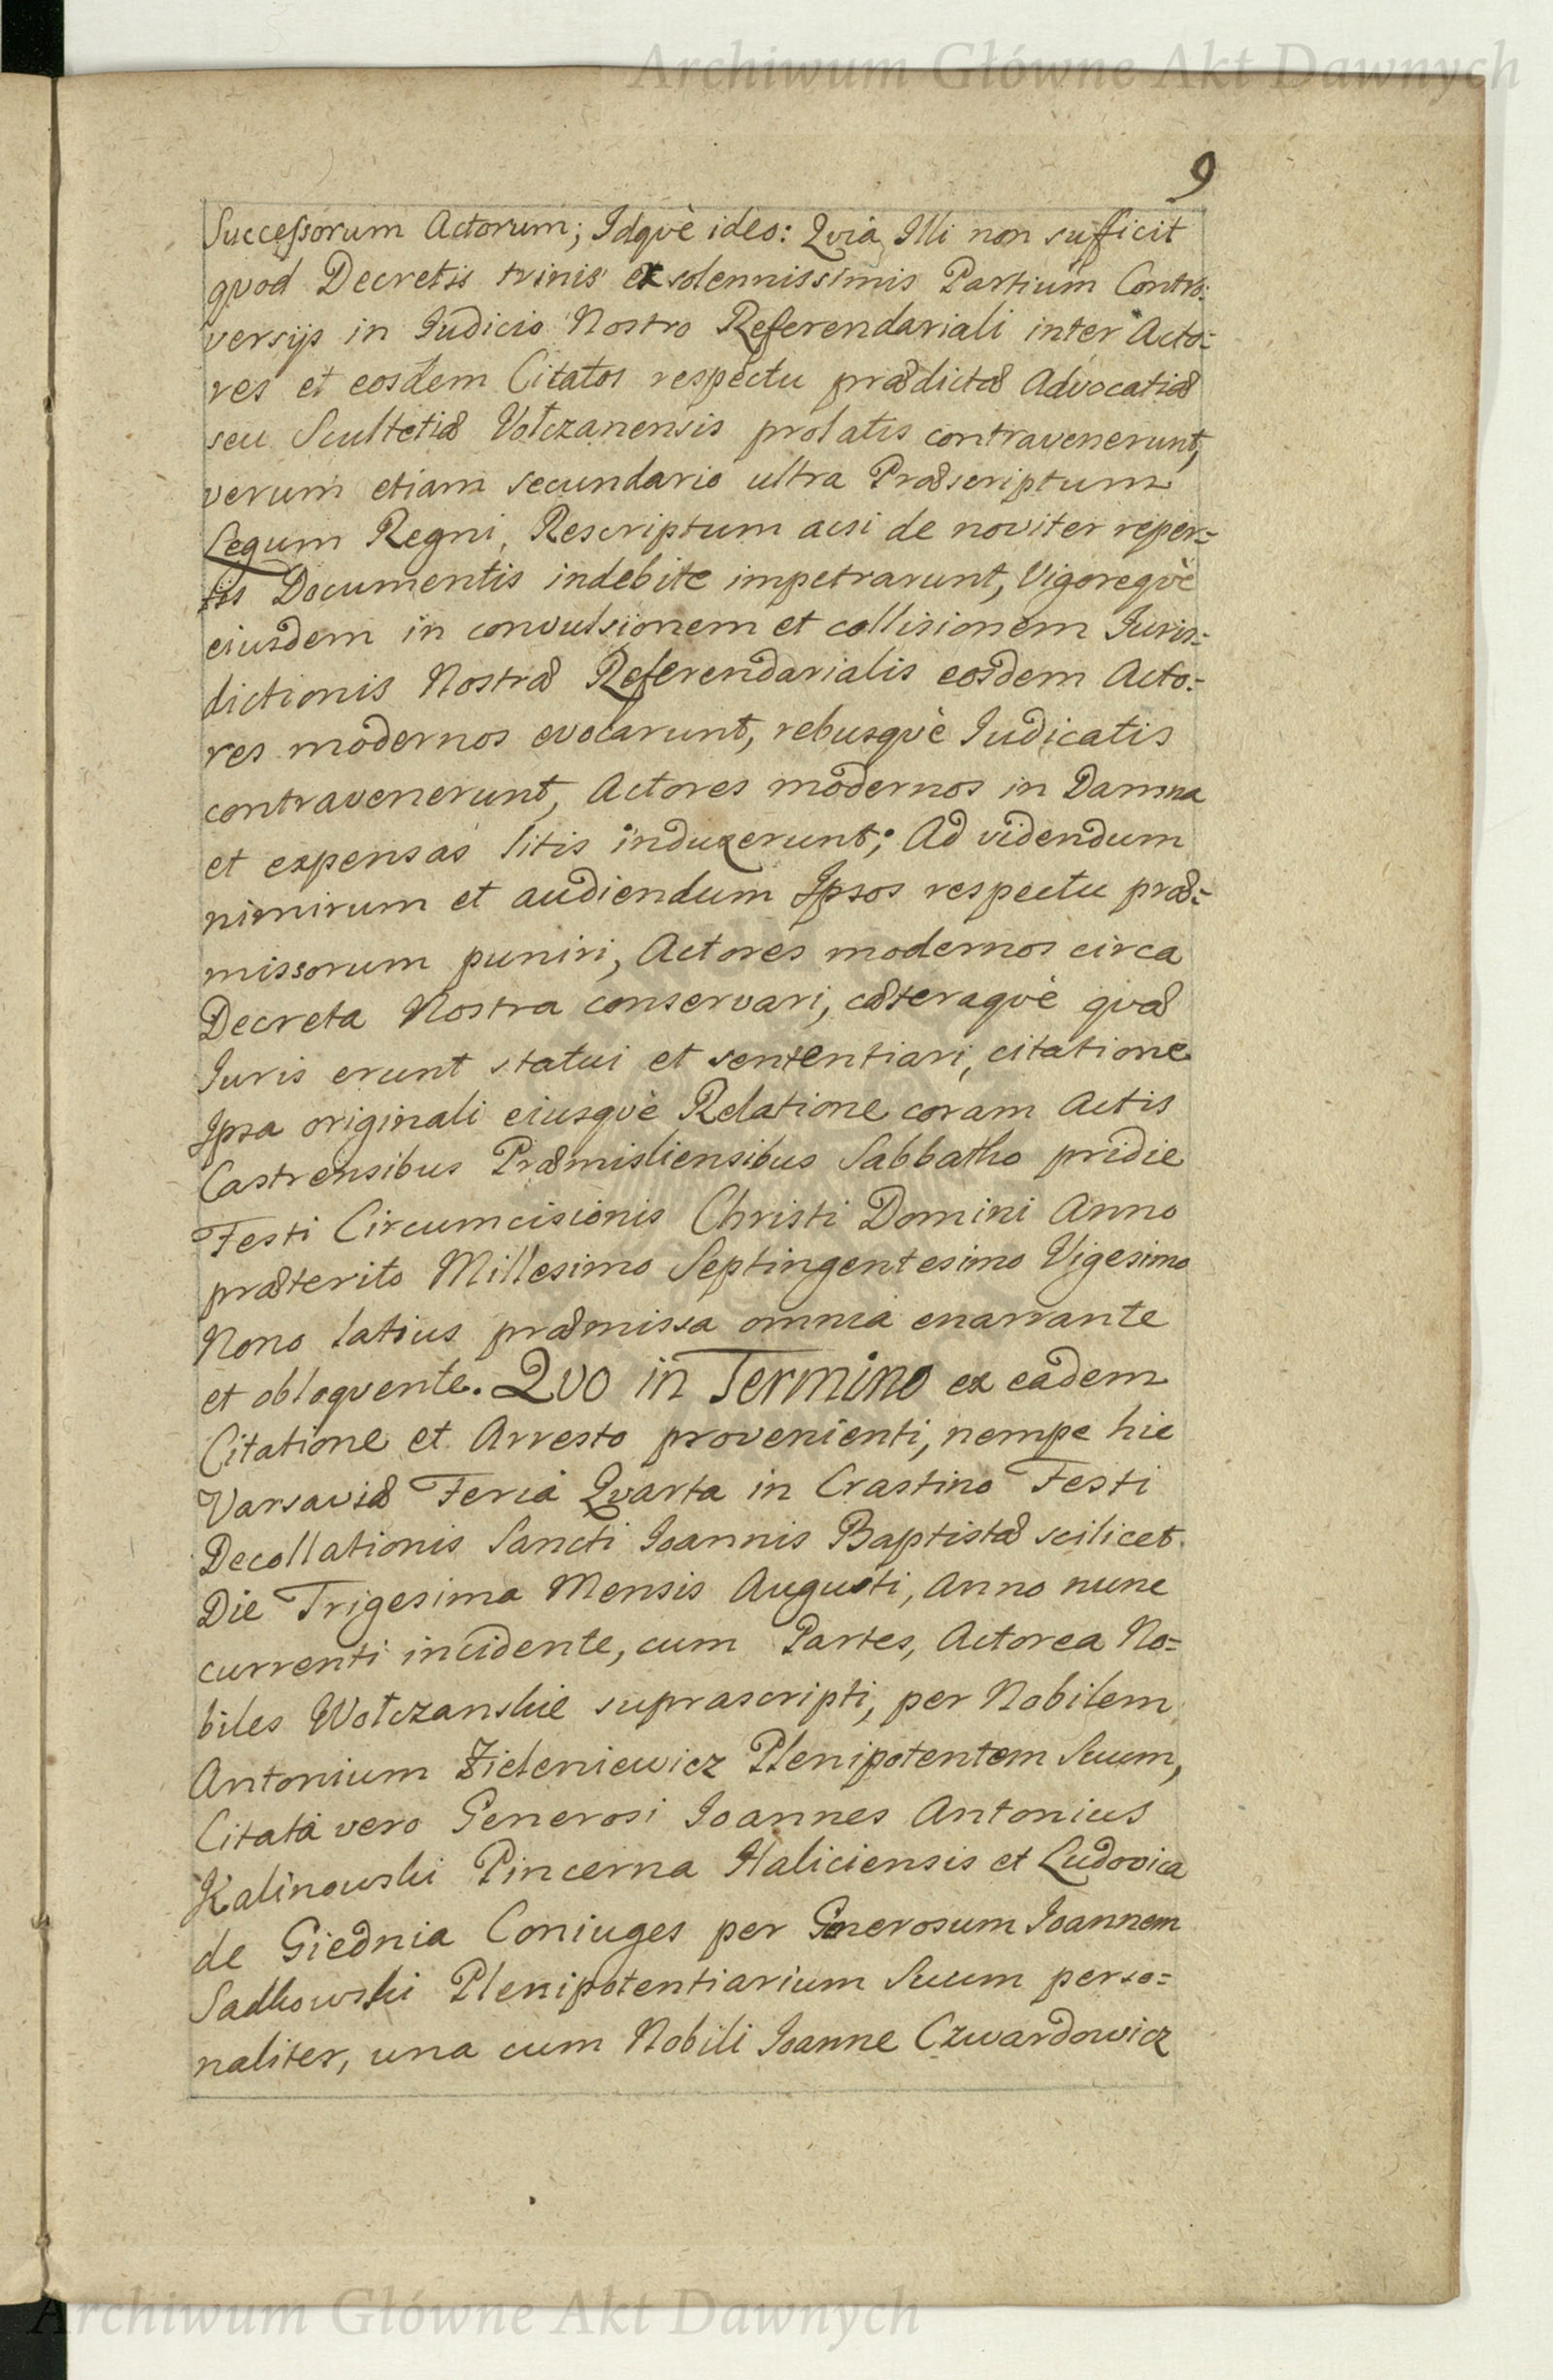 Archiwum Główne Akt Dawnych
9
Successorum Actorum; Idqvè ideo: Qvia Illi non sufficit
qvod Decretis trinis ex solennissimis Partium Contro=
versijs in Iudicio Nostro Referendariali inter Acto=
res et eosdem Citatos respectu prædictæ Advocatiæ
seu Scultetiæ Vołczanensis prolatis contravenerunt,
verum etiam secundario ultra Præscriptum
Legum Regni, Rescriptum acsi de noviter reper=
tis Documentis indebite impetrarunt, Vigoreqvè
eiusdem in convulsionem et collisionem Iuris=
dictionis Nostræ Referendarialis eosdem Acto=
res modernos evocarunt, rebusqvè Iudicatis
contravenerunt, Actores modernos in Damna
et expensas litis induxerunt; Ad videndum
nimirum et audiendum Ipsos respectu præ=
missorum puniri, Actores modernos circa
Decreta Nostra conservari, cæteraqvè qvæ
Iuris erunt statui et sententiari, citatione
Ipsa originali eiusqvè Relatione coram Actis
Castrensibus Præmisliensibus Sabbatho pridie
Festi Circumcisionis Christi Domini Anno
præterito Millesimo Septingentesimo Vigesimo
Nono latius præmissa omnia enarrante
et obloqvente. Qvo in Termino ex eadem
Citatione et Arresto provenienti, nempe hic
Varsaviæ Feria Qvarta in Crastino Festi
Decollationis Sancti Ioannis Baptistæ scilicet
Die Trigesima Mensis Augusti, Anno nunc
currenti incidente, cum Partes, Actorea No=
biles Wołczanskie suprascripti, per Nobilem
Antonium Zieleniewicz Plenipotentem Suum,
Citata vero Generosi Ioannes Antonius
Kalinowski Pincerna Haliciensis et Ludovica
de Giednia Coniuges per Generosum Ioannem
Sadkowski Plenipotentiarium Suum perso=
naliter, una cum Nobili Ioanne Czwardowicz
Archiwum Główne Akt Dawnych